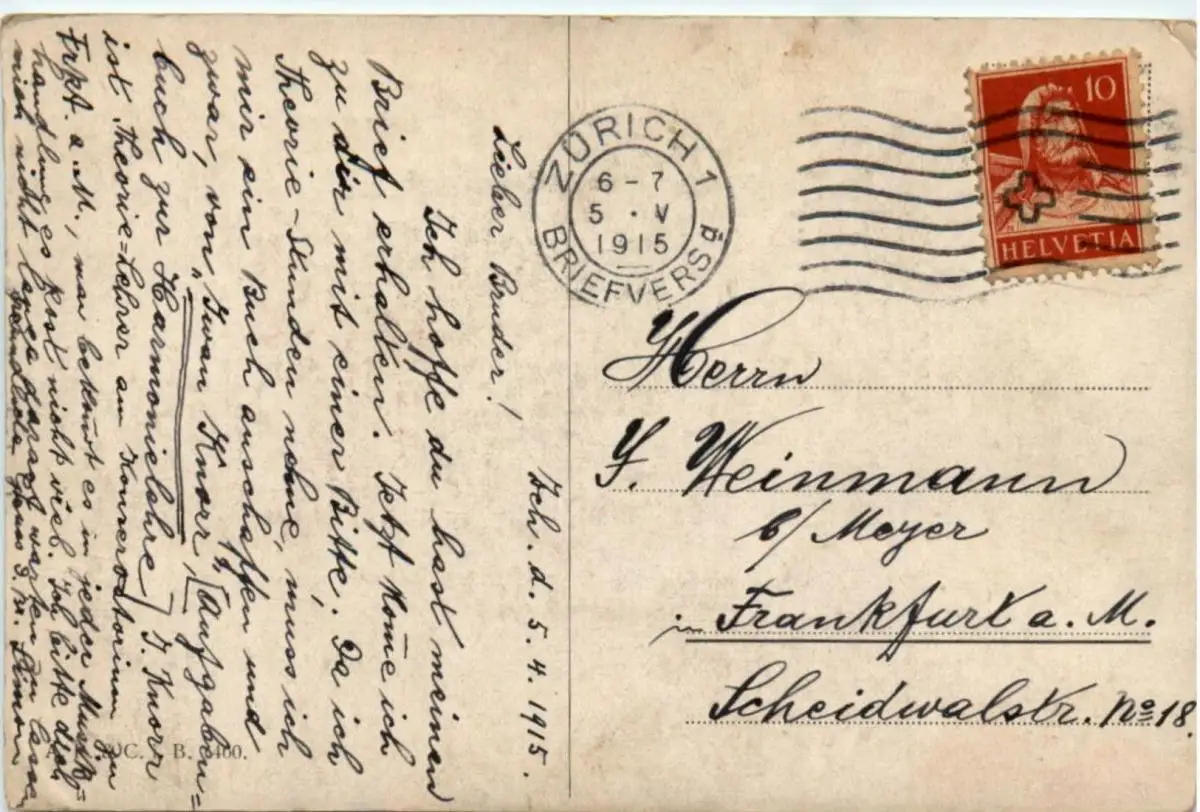 Zch. d. 5. 4. 1915.
Lieber Bruder!
Ich hoffe du hast meinen
Brief erhalten. Jetzt kom̄e ich
zu dir mit einer Bitte. Da ich
Theorie-Stunden nehme, muss ich
mir ein Buch anschaffen und
zwar, von „Iwan Knorr“, [Aufgaben=
buch zur Harmonielehre] I. Knorr
ist Theorie=Lehrer am Konservatorium in
Frkt. a. M., man bekom̄t es in jeder Musik=
handlung es kost nicht viel. Ich bitte dich
mich nicht lange darauf warten zu lassen
A. SOC. B. 3400.
ZÜRICH 1
6-7
5 · V
1915
BRIEFVERSd.
10
HELVETIA
Herrn
S. Weinmann
b/ Meyer
in Frankfurt a. M.
Scheidwalstr. No 18.